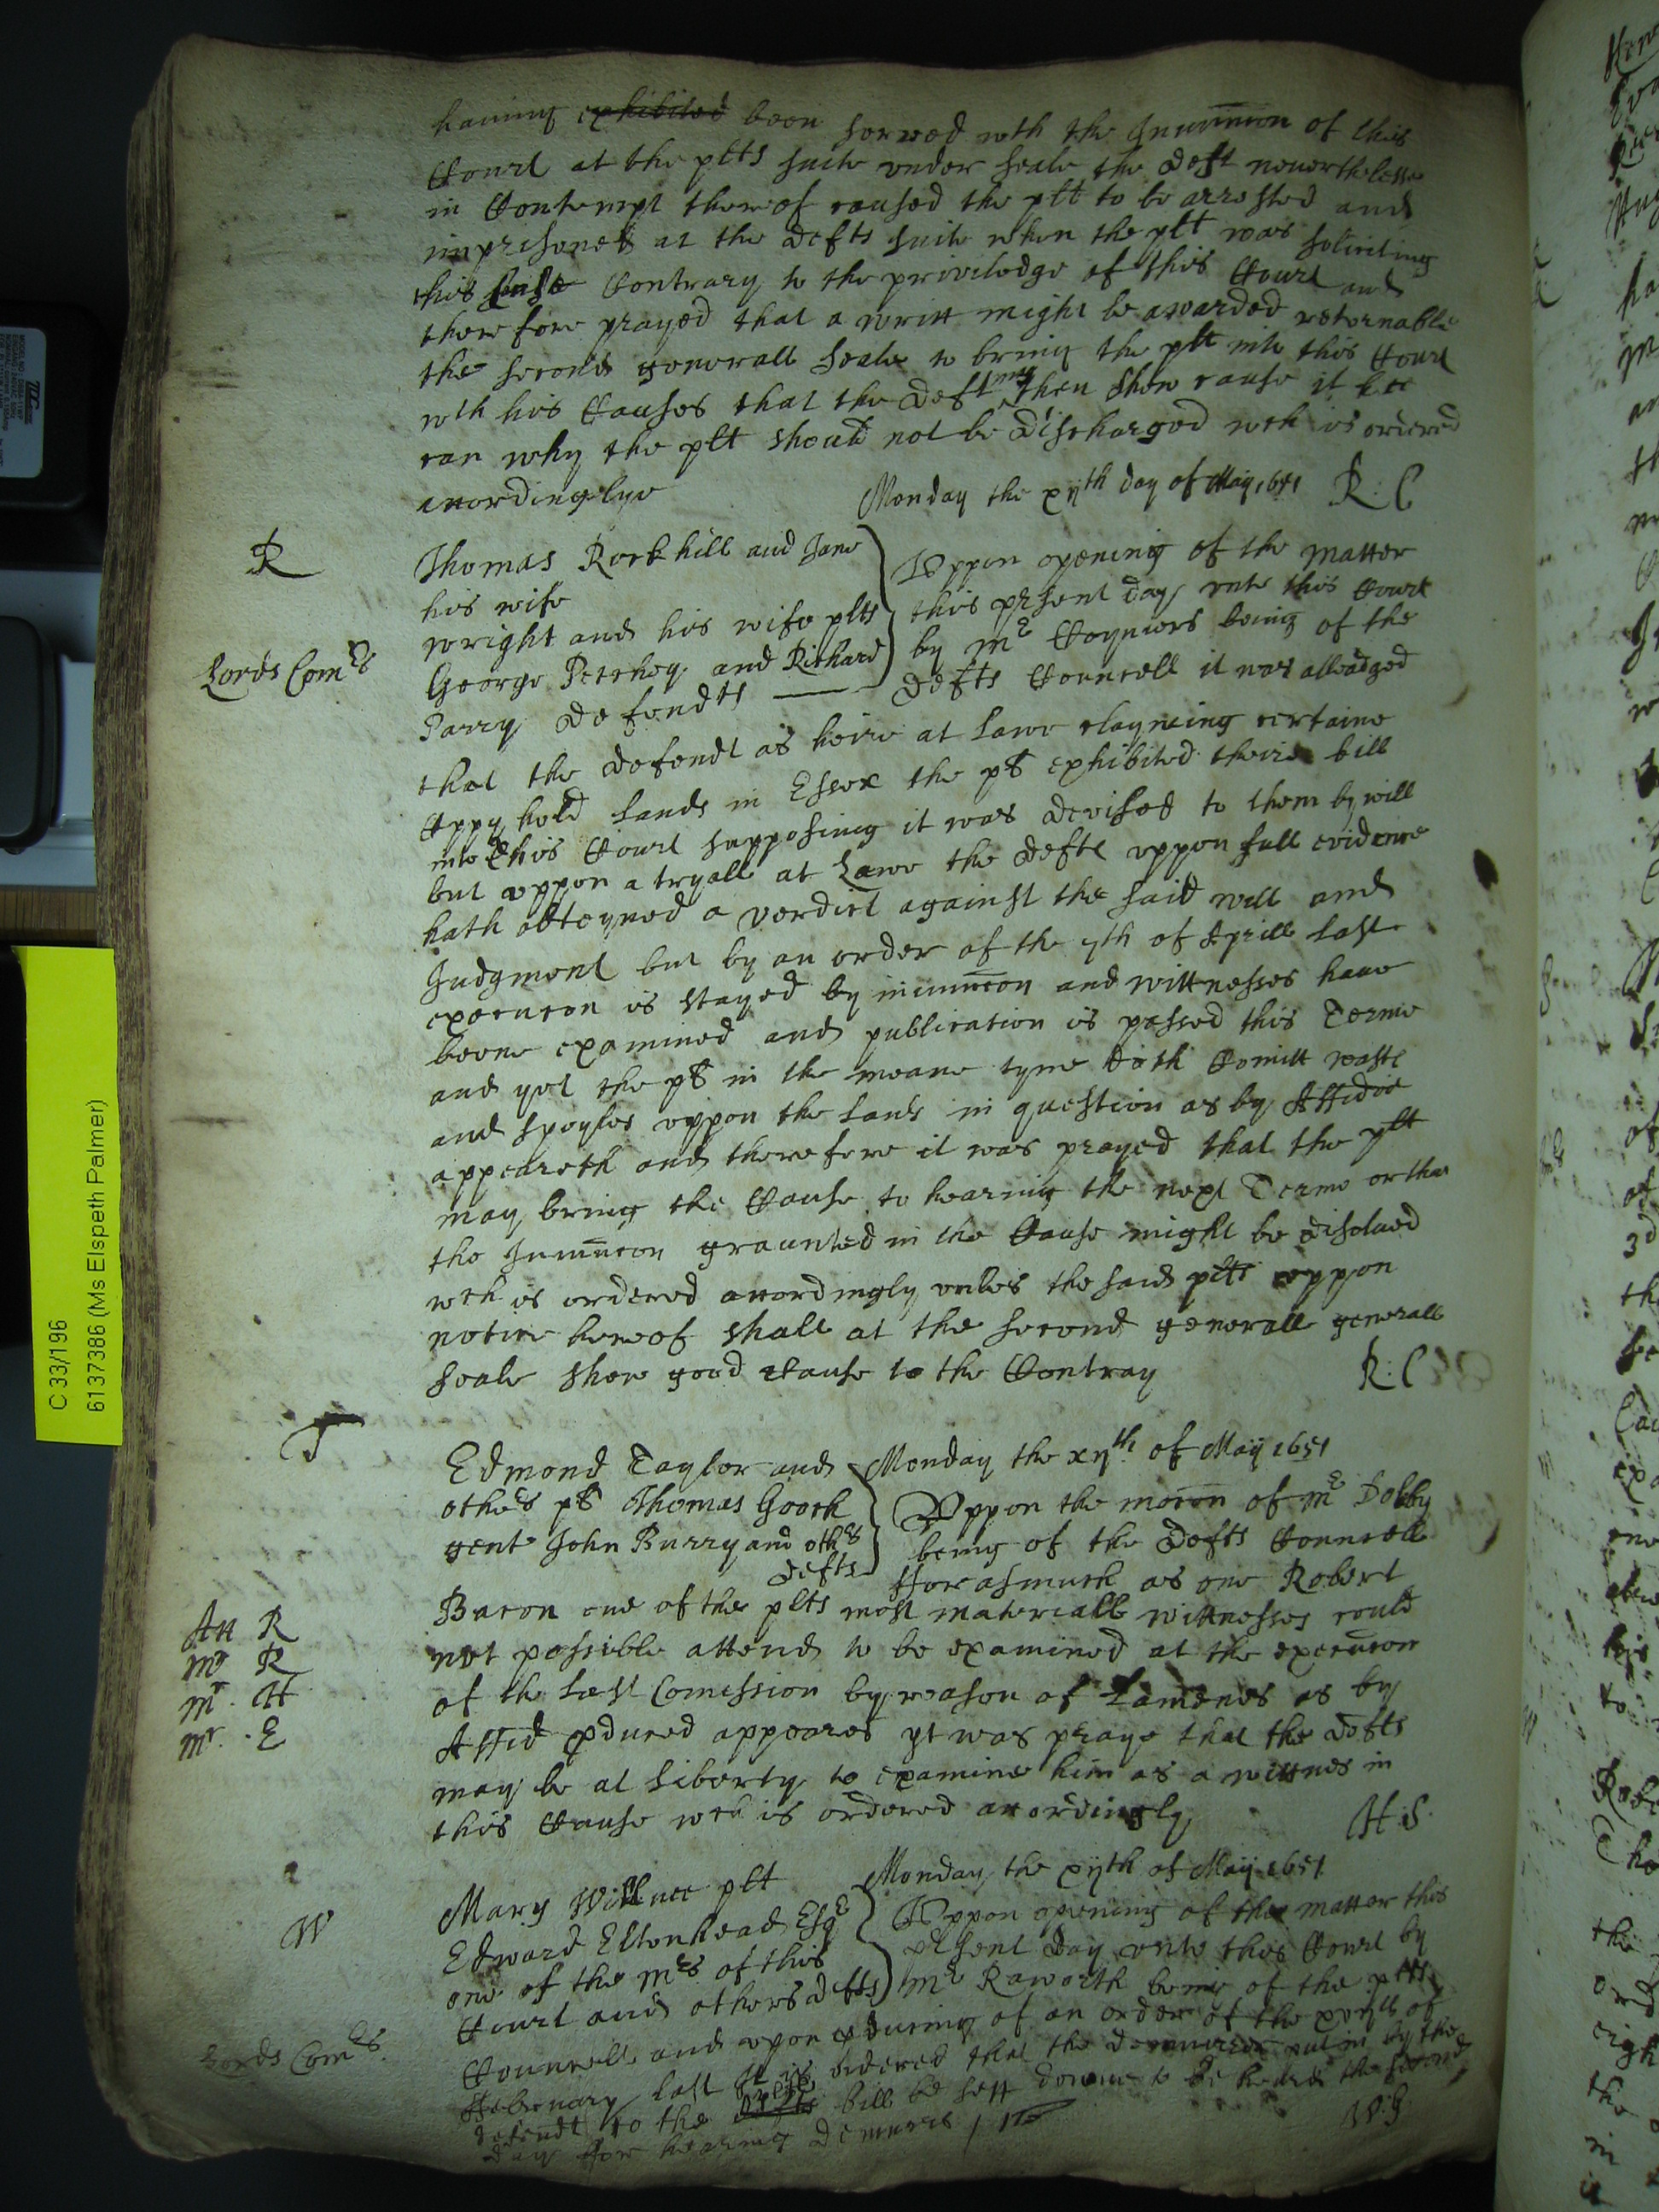 hauing exhibited been serued wth the Iniunccon of this
Court at the plts suite vnder seale the deft neuerthelesse
in Contempt thereof caused the plt to be arrested and
imprisoned at the defts suite when the plt was soliciting
this suite Contrary to the priviledge of this Court and
therefore prayed that a writt might be awarded retornable
the second generall seale to bring the plt into this Court
wth his Causes that the deft may then shew cause if hee
can why the plt should not be discharged wch is ordered
accordinglye
Monday the xijth day of May 1651 R: C
R
Thomas Rockhill and Jane
his wife
wright and his wife plts
George Petchey and Richard
Parry defendts
Vppon opening of the matter
this psent day vnto this Court
by Mr Coyniers being of the
defts Councell it was alleadged
Lords Comrs
that the defendt as heire at Lawe clayming certaine
Coppyhold Lands in Essex the pts exhibited theire bill
into this Court supposing it was devised to them by will
but vppon a tryall at Lawe the defte vppon full evidence
hath obteyned a verdict against the said will and
Judgment but by an order of the 7th of Aprill last
execucon is stayed by iniunccon and wittnesses haue
beene examined and publication is passed this Terme
and yet the pts in the meane tyme doth Comitt waste
and spoyles vppon the Lands in question as by Affidt
appeareth and therefore it was prayed that the plt
may bring the Cause to hearing the next Terme or that
the Iniunccon graunted in the Cause might be disolued
wch is ordered accordingly vnles the said plts vppon
notice hereof shall at the second generall generall
seale shew good cause to the Contray
R: C
T
Edmond Taylor and
others pts Thomas Gooch
gent John Burry and othrs
defts
Monday the xijth of May 1651
Vppon the mocon of Mr Dobby
being of the Defts Councell
fforasmuch as one Robert
Bacon one of the plts most materiall wittnesses could
not possible attend to be examined at the execucon
of the last Comission by reason of Lamenes as by
Affid pduced appeares yt was praye that the defts
may be at liberty to examine him as a wittnes in
this Cause wch is ordered accordingly
H: S.
Att R
Mr R
Mr. H
Mr. E
W
Mary Willnee plt
Edward Eltonhead Esqr
one of the Mrs of this
Court and others defts
Monday the xijth of May 1651
Vppon opening of the matter this
psent day vnto this Court by
Mr Raworth being of the plts
Lords Comrs.
Councell and vpon pducing of an order of the of
ffebruary last It is ordered that the demurrer put in by the
defendt to the defts plts bill be sett downe to be heard the second
day for hearing demurrs
W: G
C 33/196
6137386 (Ms Elspeth Palmer)